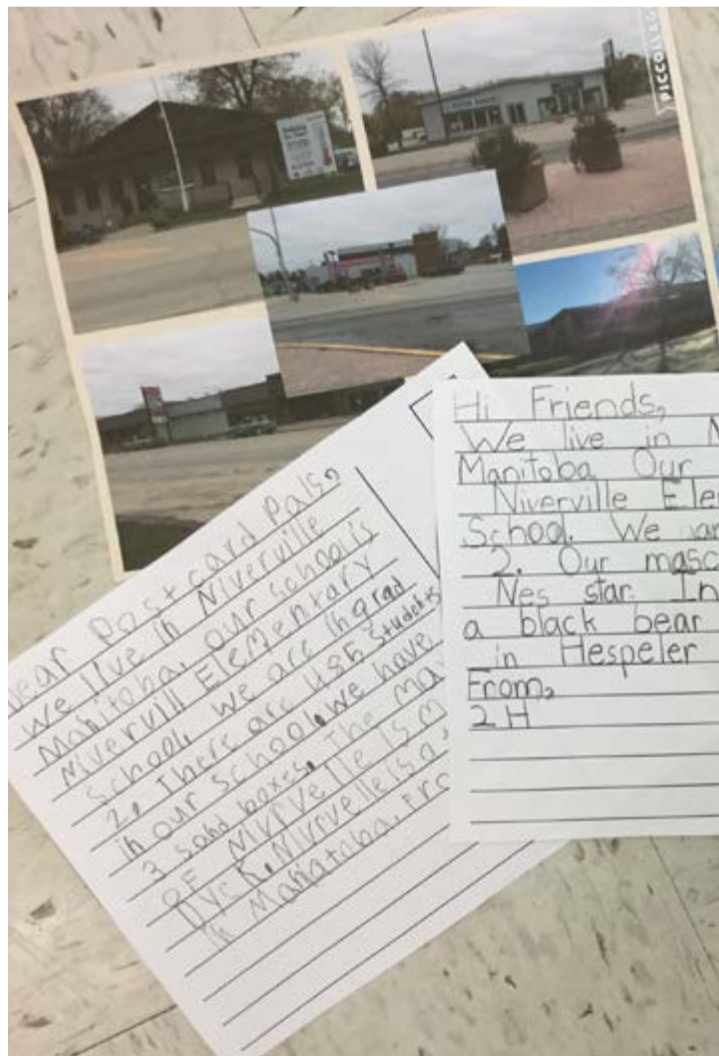 PICCOLLAG
Dear Postcard Pals,
We live in Niverville
Manitoba, our school is
Nivervill Elementary
School. We are in grad
2. There are 485 students
in our school. We have
3 sand boxes. The
OF Nivrvelle is
Dyck. Nivrvelle is a
in Manatoba.
Hi Friends,
We live in N
Manitoba Our
Niverville Ele
School. We ar
2. Our masc
Nes star. In
a black bear
in Hespeler
From,
2H